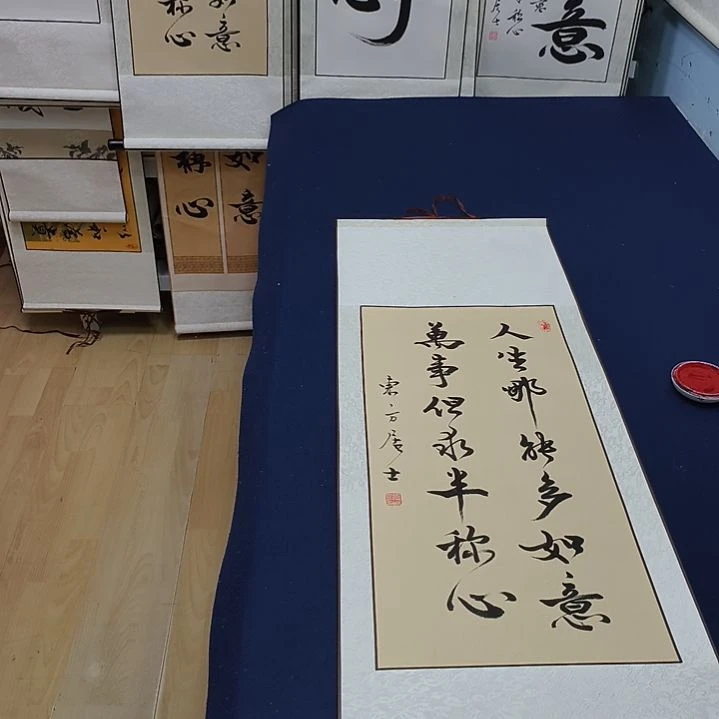 人生哪能多如意
萬事但求半称心
東方居士
如意
称心
意
如意
称心